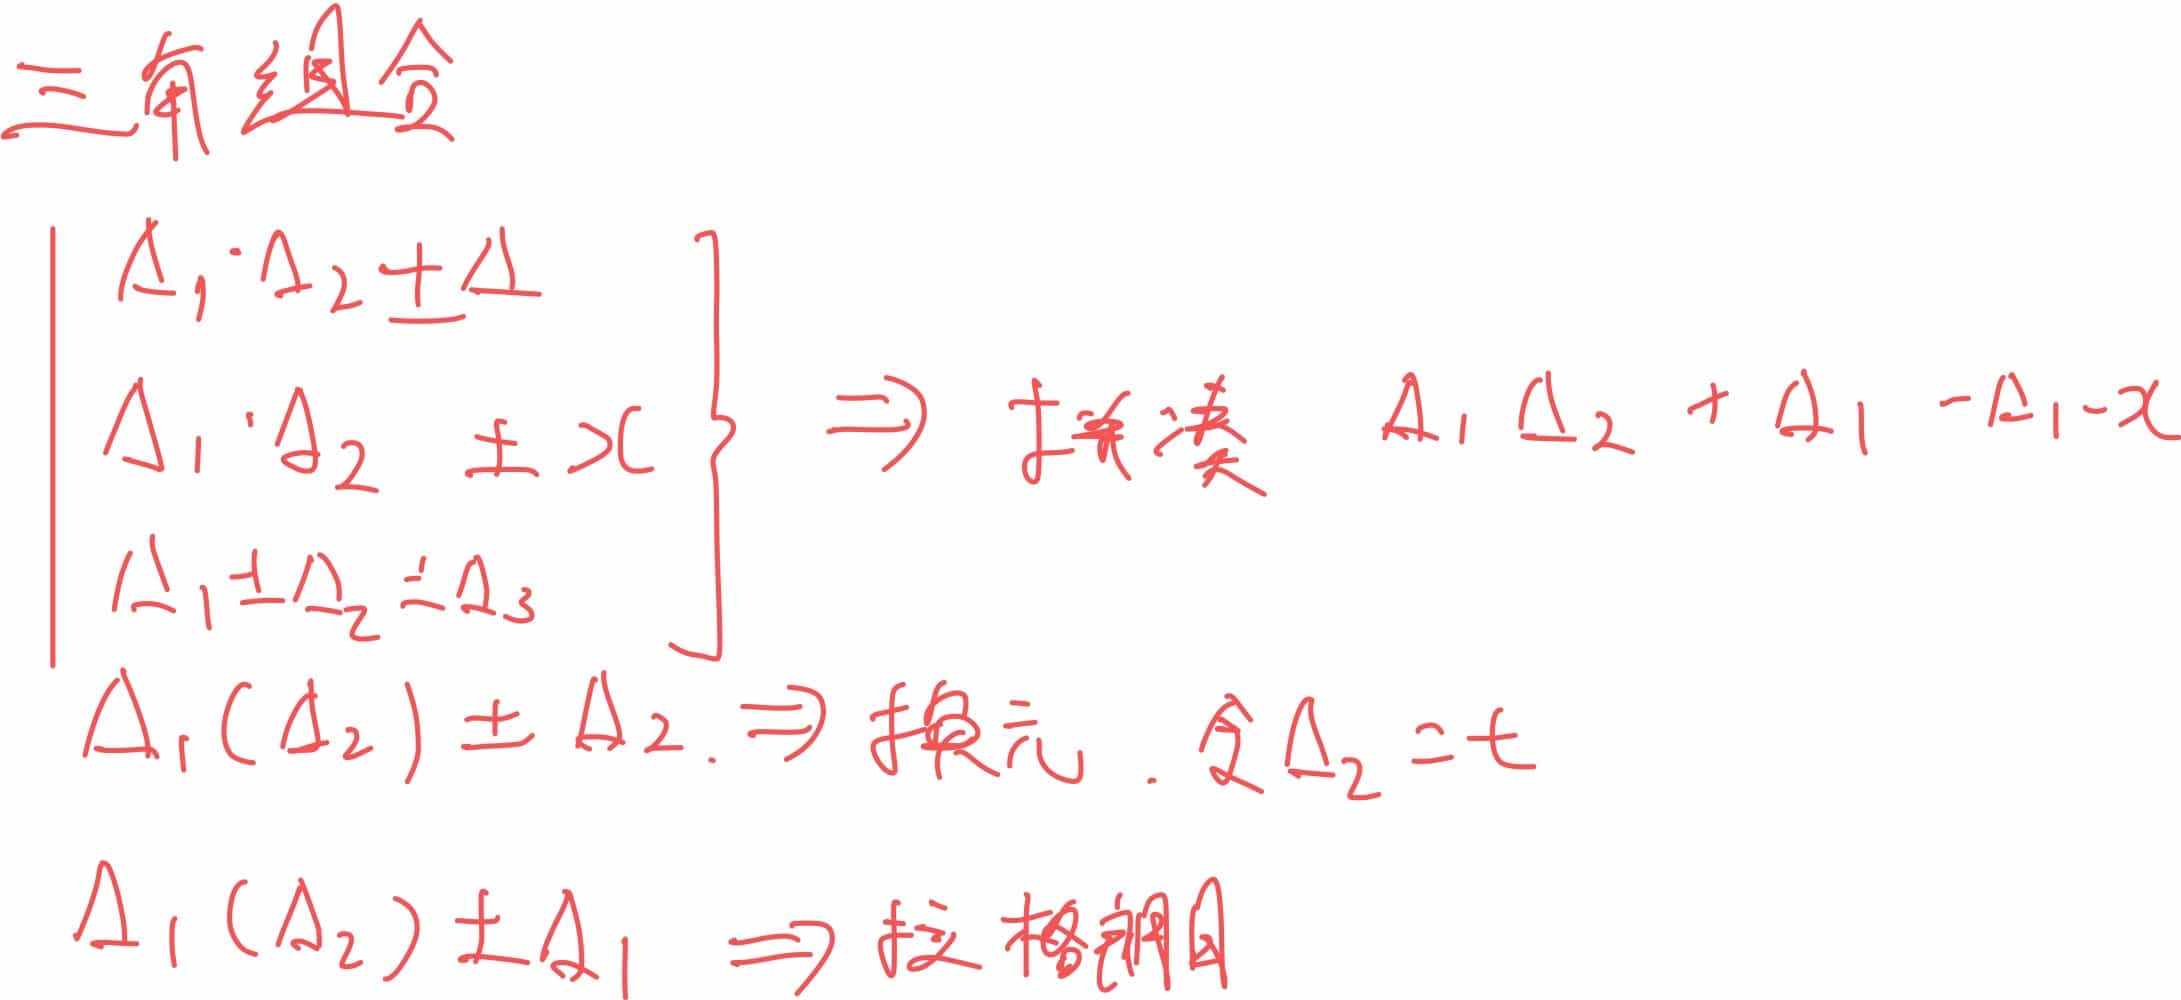 三角组合
Δ₁·Δ₂ ± Δ
Δ₁·Δ₂ ± x
Δ₁ ± Δ₂ ± Δ₃
} ⇒ 拼凑 Δ₁Δ₂ + Δ₁ - Δ₁ - x
Δ₁(Δ₂) ± Δ₂. ⇒ 换元. 令Δ₂ = t
Δ₁(Δ₂) ± Δ₁ ⇒ 拉格朗日